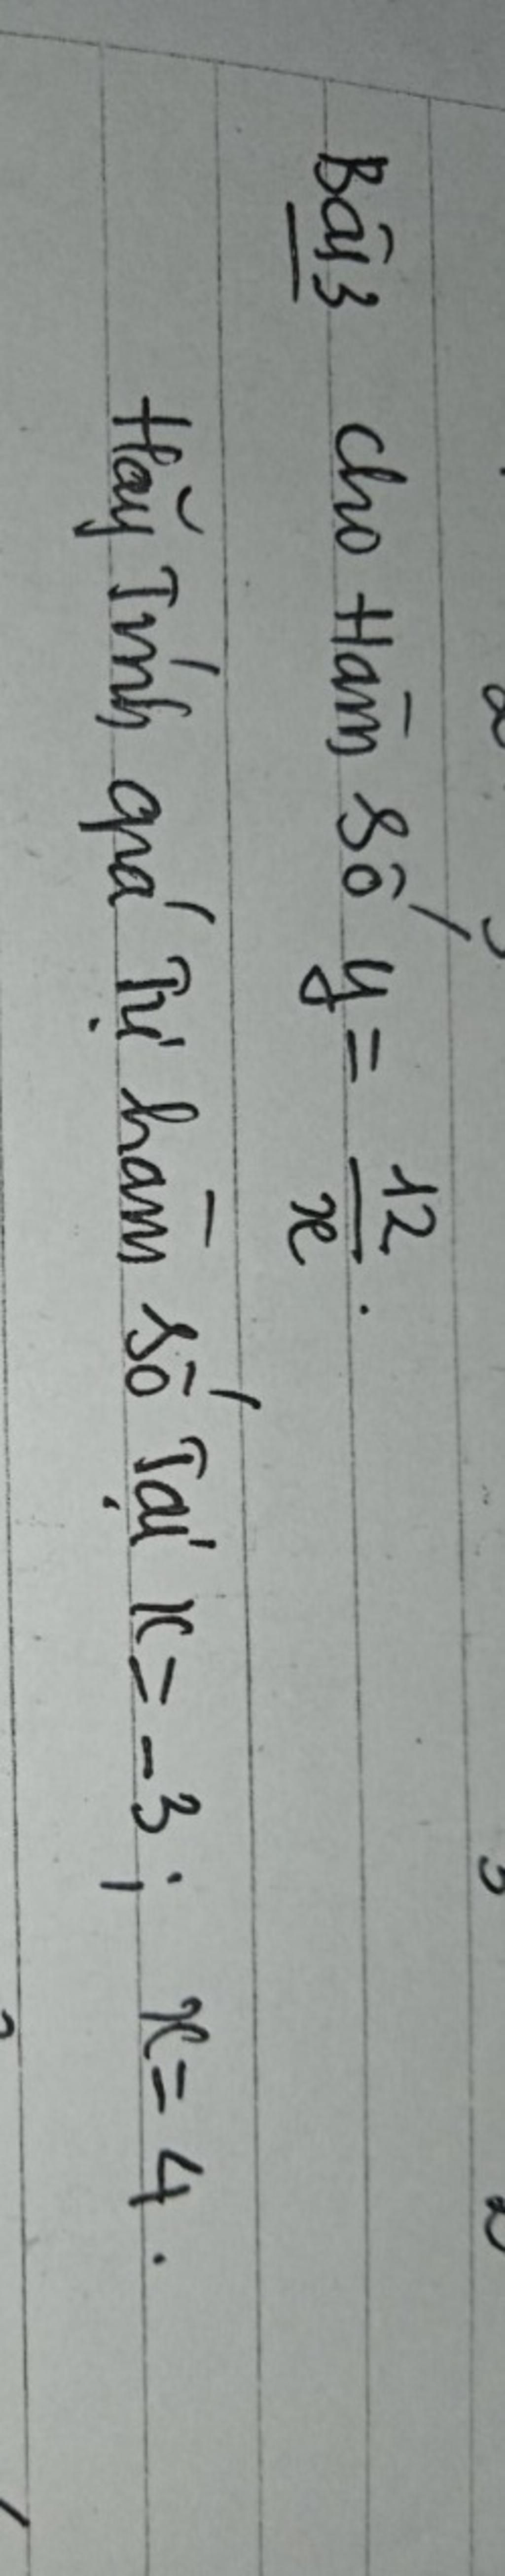 Bài 3 cho Hàm số y = 12/x .
Hãy Tính giá Trị hàm số Tại x = -3 ; x = 4 .